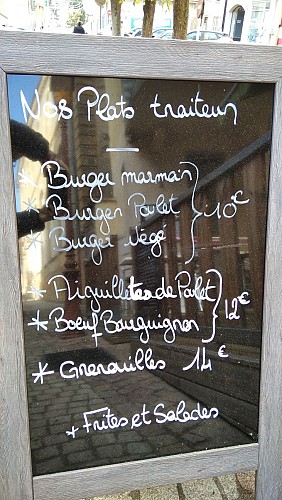 Nos Plats traiteur
* Burger marmain
* Burger Poulet
* Burger végé
10€
* Aiguillettes de Poulet
* Boeuf Bourguignon
12€
* Grenouilles 14€
* Frites et Salades